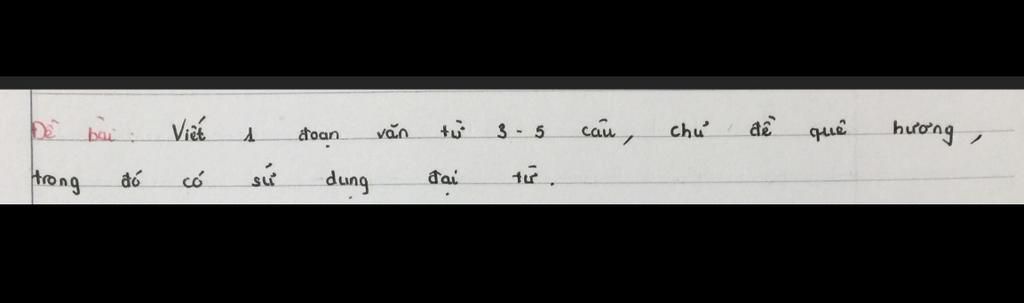 Đề bài: Viết 1 đoạn văn từ 3-5 câu, chủ đề quê hương,
trong đó có sử dụng đại từ.